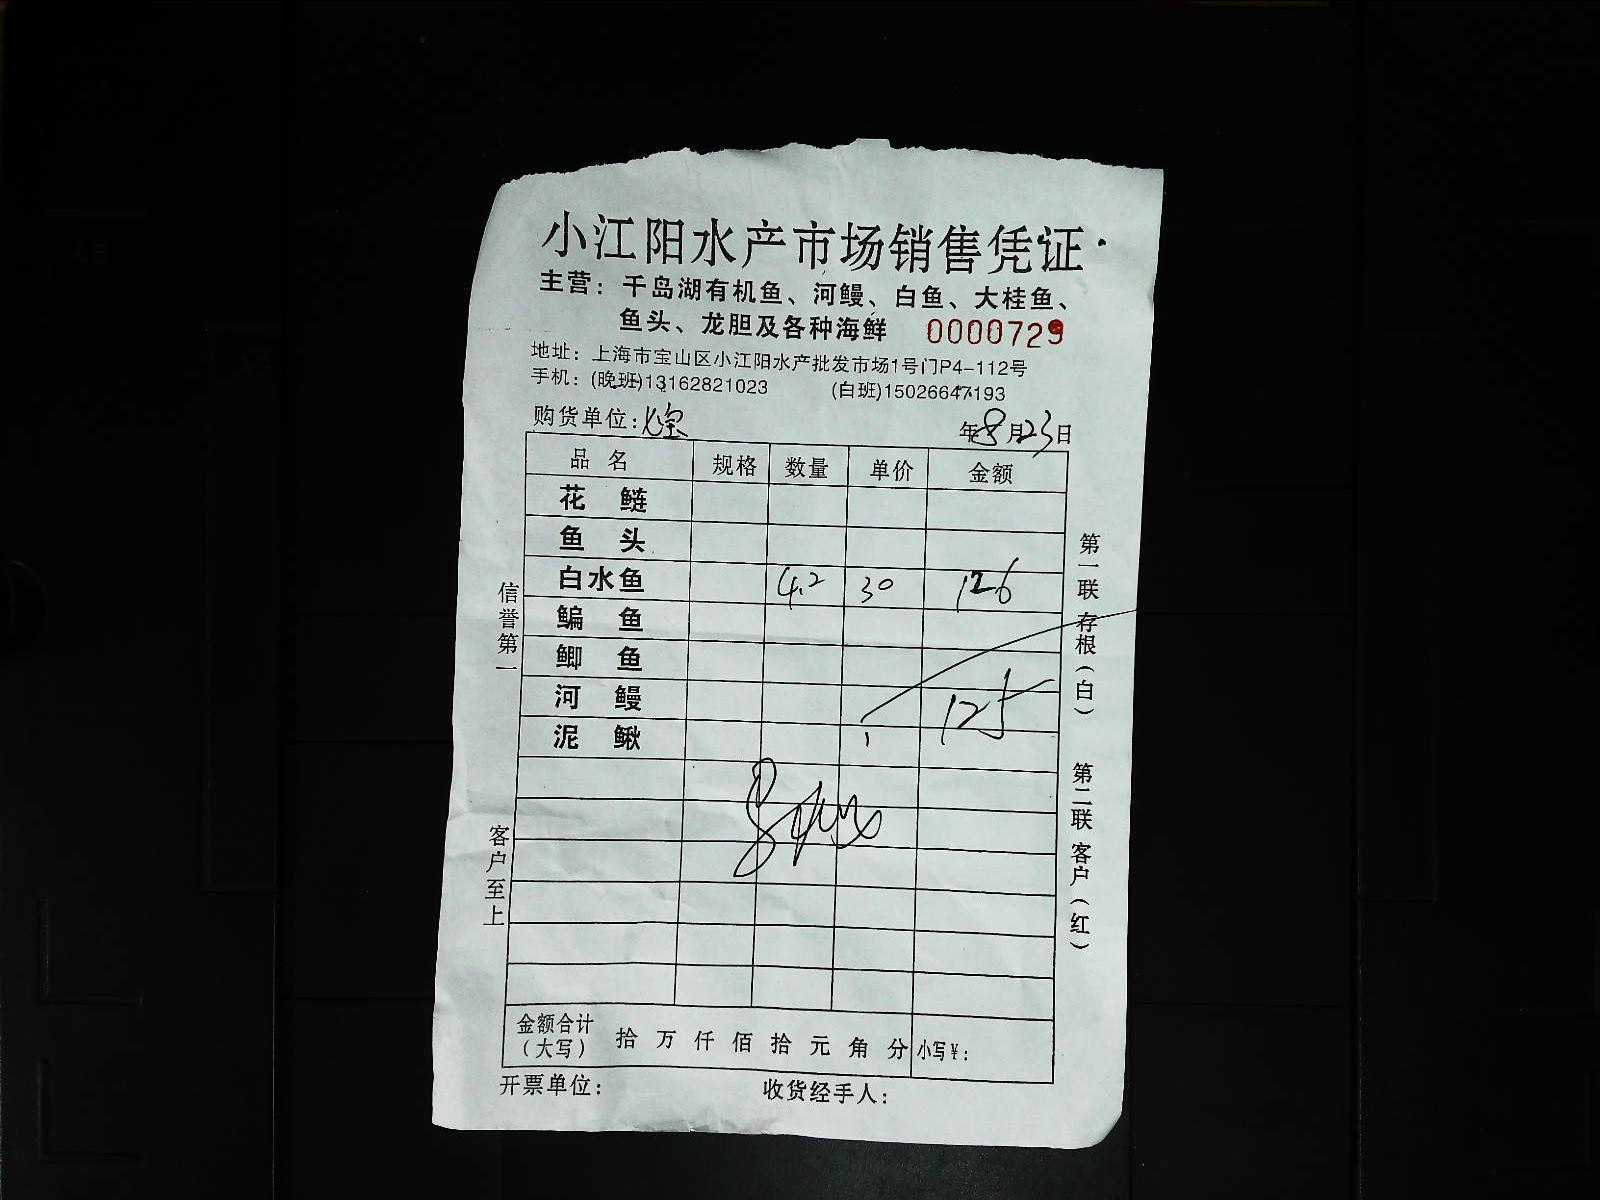 小江阳水产市场销售凭证
主营：千岛湖有机鱼、河鳗、白鱼、大桂鱼、
鱼头、龙胆及各种海鲜 0000729
地址：上海市宝山区小江阳水产批发市场1号门P4-112号
手机：(晚班)13162821023 (白班)15026647193
购货单位: 年8月23日
品名 规格 数量 单价 金额
花鲢
鱼头
白水鱼 4.2 30 126
鳊鱼
鲫鱼
河鳗 125
泥鳅
金额合计（大写） 拾万仟佰拾元角分 小写¥：
开票单位： 收货经手人：
信誉第一
客户至上
第一联 存根（白）
第二联 客户（红）